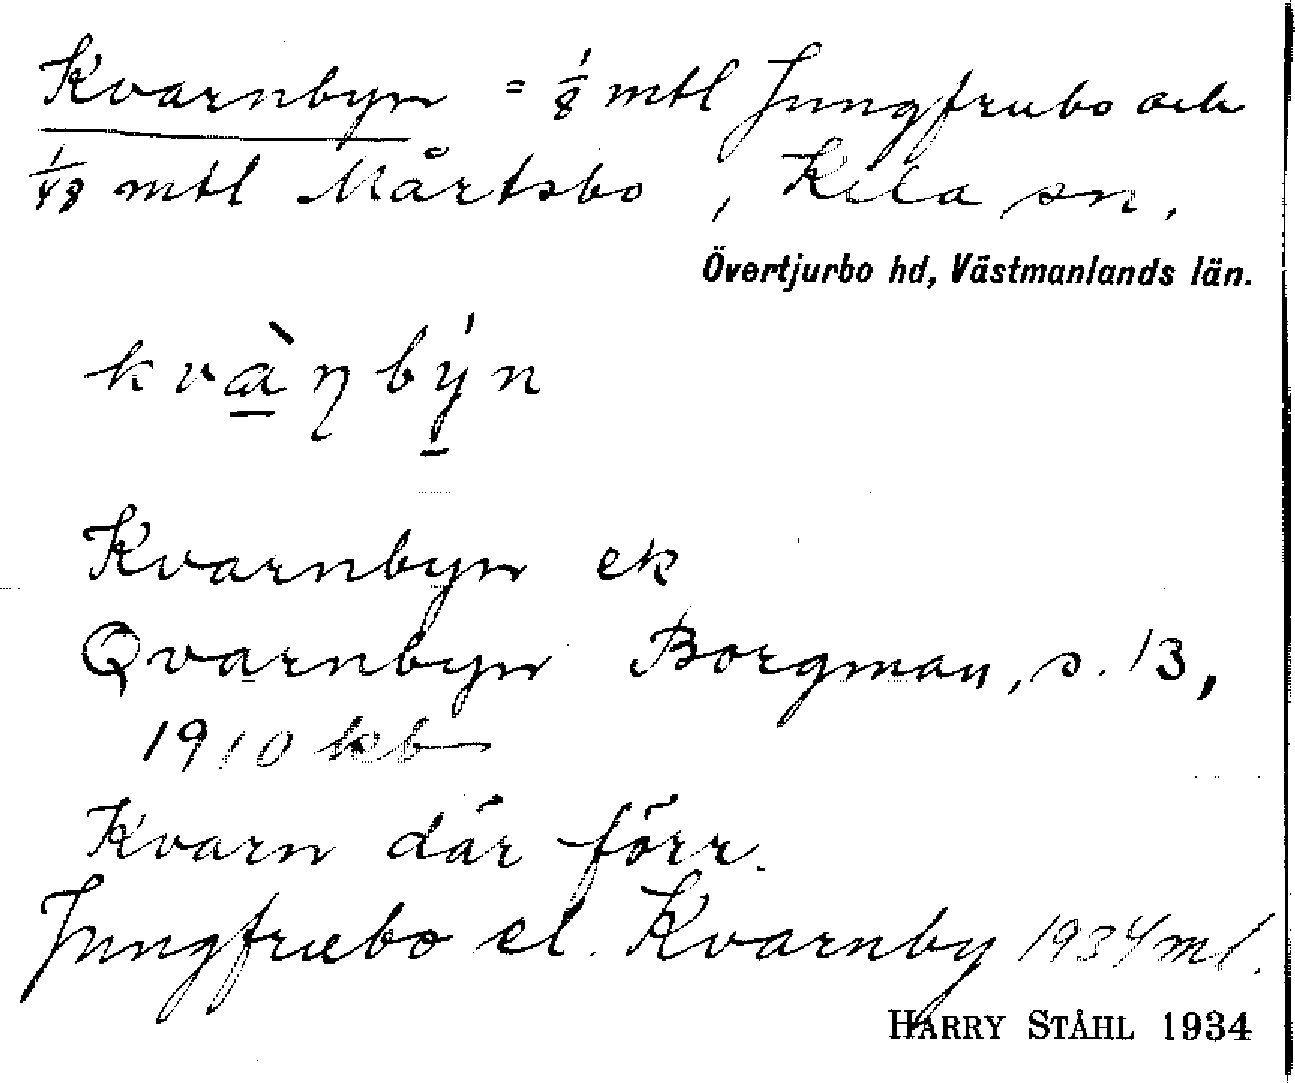 Kvarnbyn = 1/8 mtl Jungfrubo och
1/48 mtl Mårtsbo, Kila sn,
Övertjurbo hd, Västmanlands län.
kvàɳbýn
Kvarnbyn ek
Qvarnbyn Borgman, s. 13,
1910 kb
Kvarn där förr.
Jungfrubo el. Kvarnby 1934 ml.
HARRY STÅHL 1934